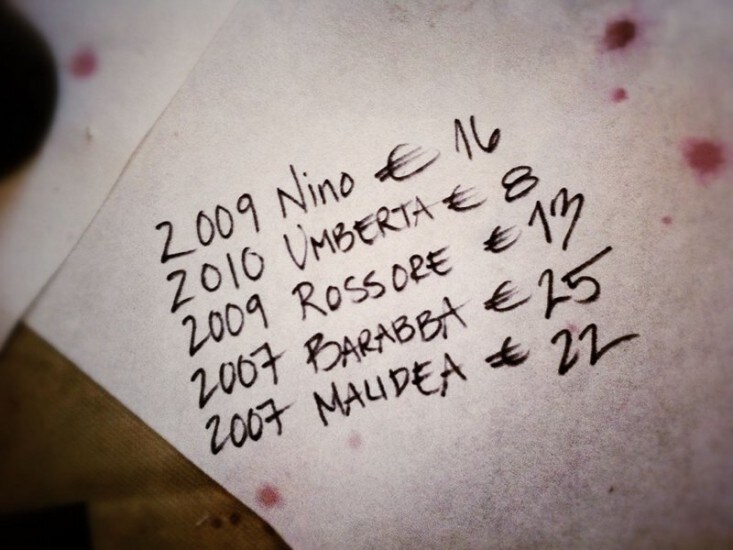 2009 Nino € 16
2010 UMBERTA € 8
2009 ROSSORE € 13
2007 BARABBA € 25
2007 MALIDEA € 22